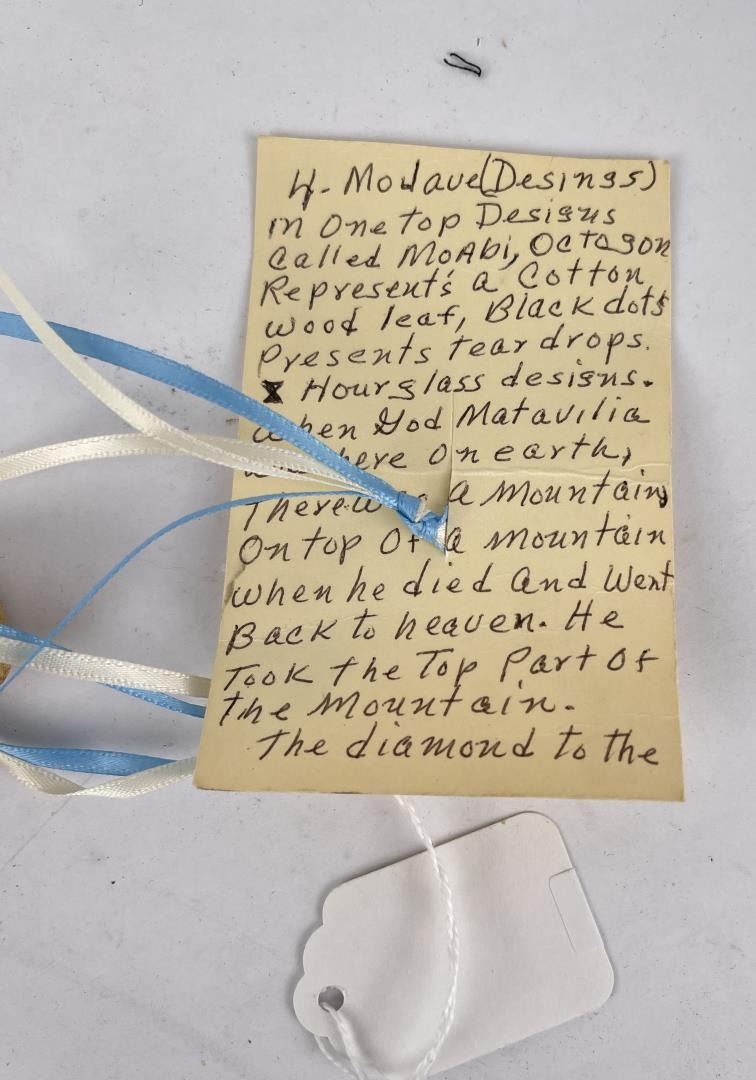 4- Mojave (Desings)
in One top Designs
Called MoAbi, Octagon
Represent's a Cotton
wood leaf, Black dots
Presents tear drops.
Hourglass designs.
When God Matavilia
here on earth,
There a mountain,
On top Of a mountain
when he died And Went
Back to heaven. He
Took the Top Part Of
The Mountain.
The diamond to the